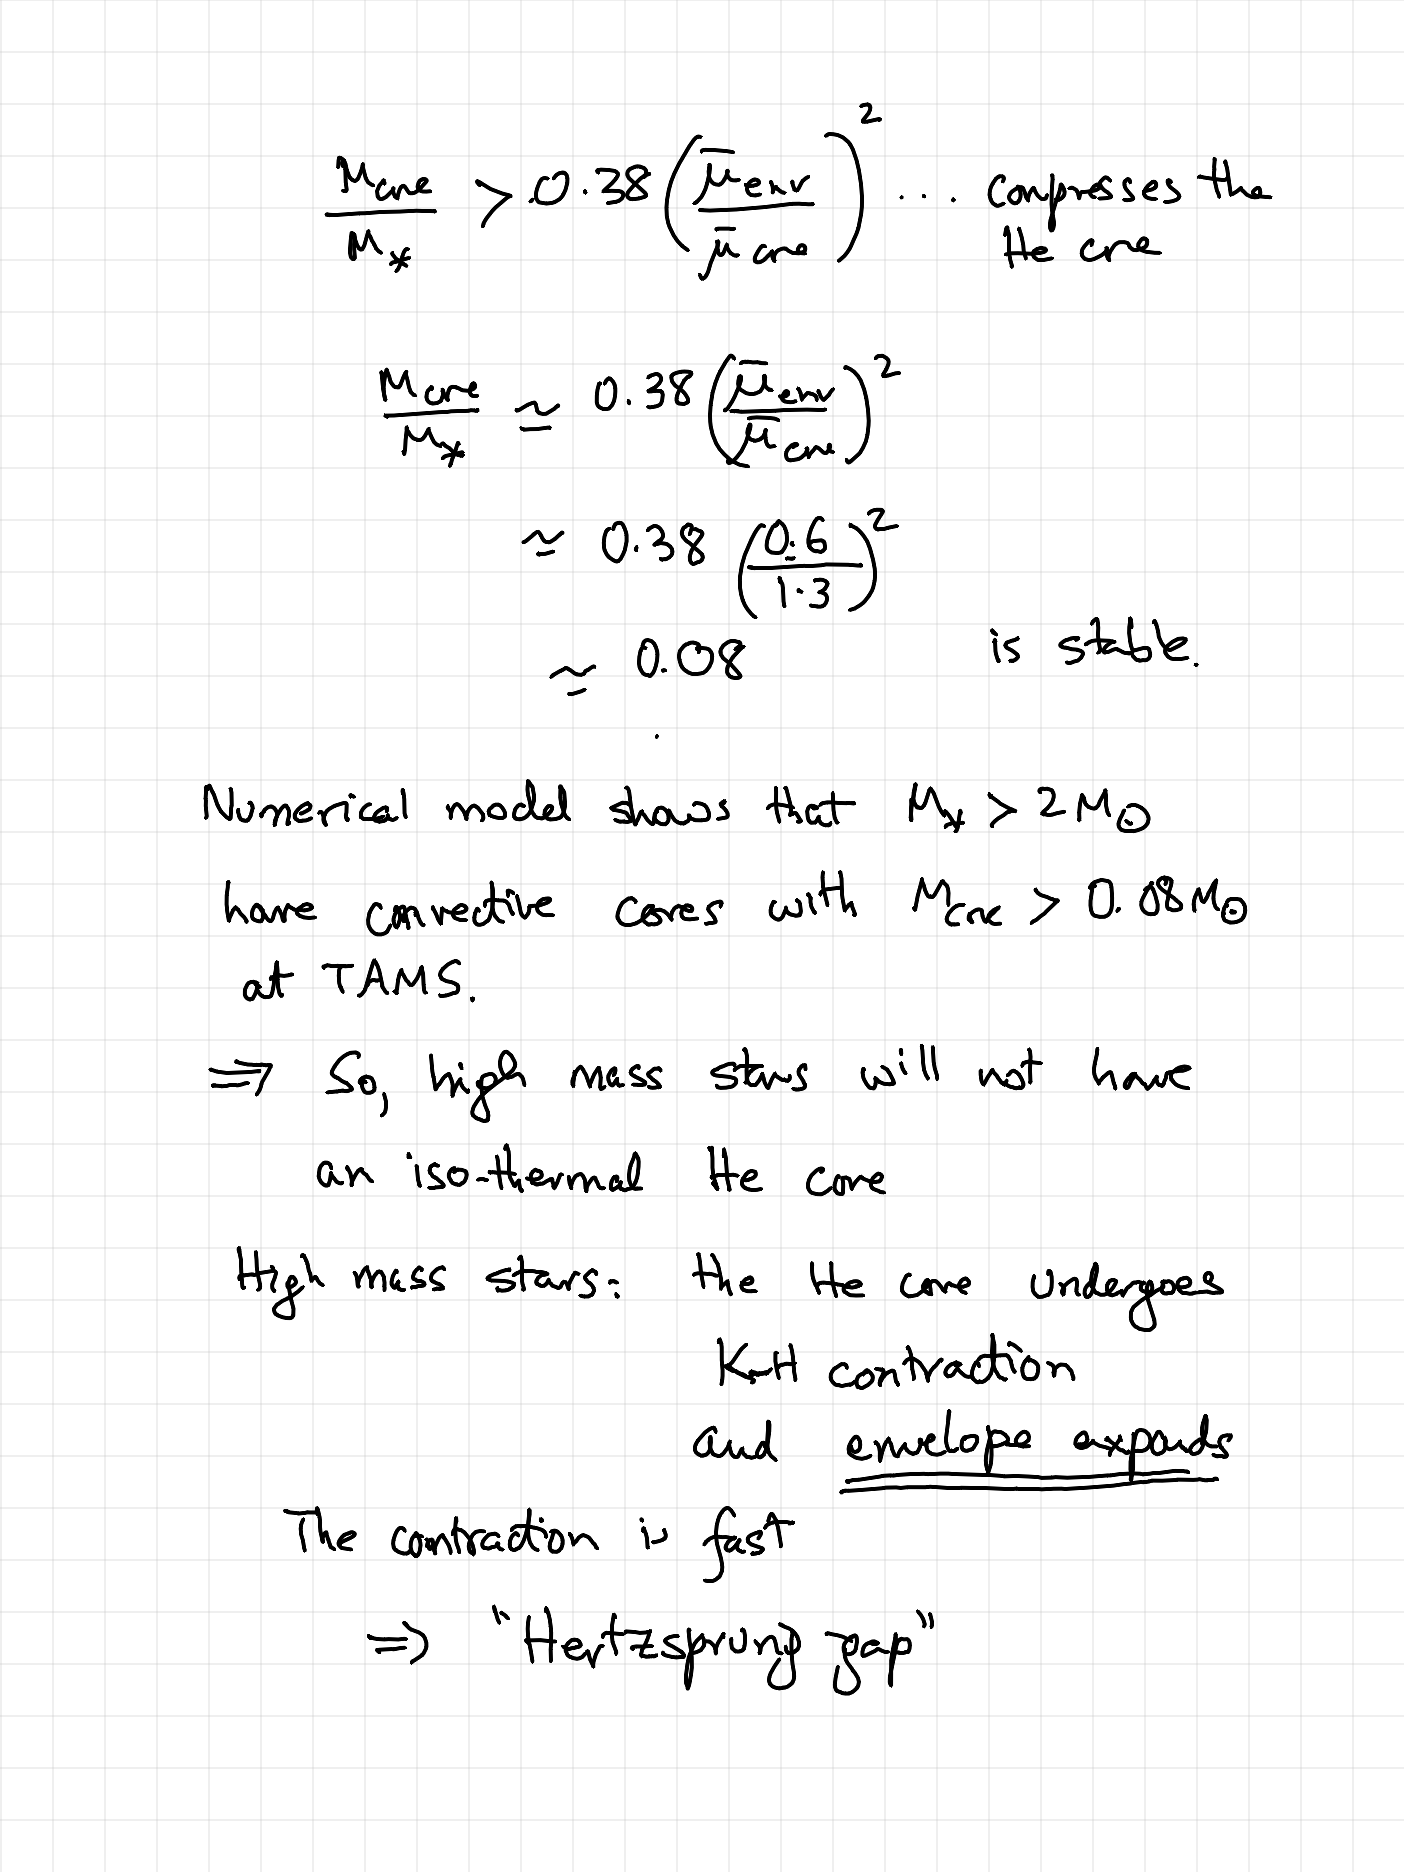 M_core / M_* > 0.38 (μ̄_env / μ̄_core)² ... compresses the
He core
M_core / M_* ≃ 0.38 (μ̄_env / μ̄_core)²
≃ 0.38 (0.6 / 1.3)²
≃ 0.08 is stable.
Numerical model shows that M_* > 2M_⊙
have convective cores with M_core > 0.08M_⊙
at TAMS.
⇒ So, high mass stars will not have
an iso-thermal He core
High mass stars: the He core undergoes
K-H contraction
and envelope expands
The contraction is fast
⇒ "Hertzsprung gap"